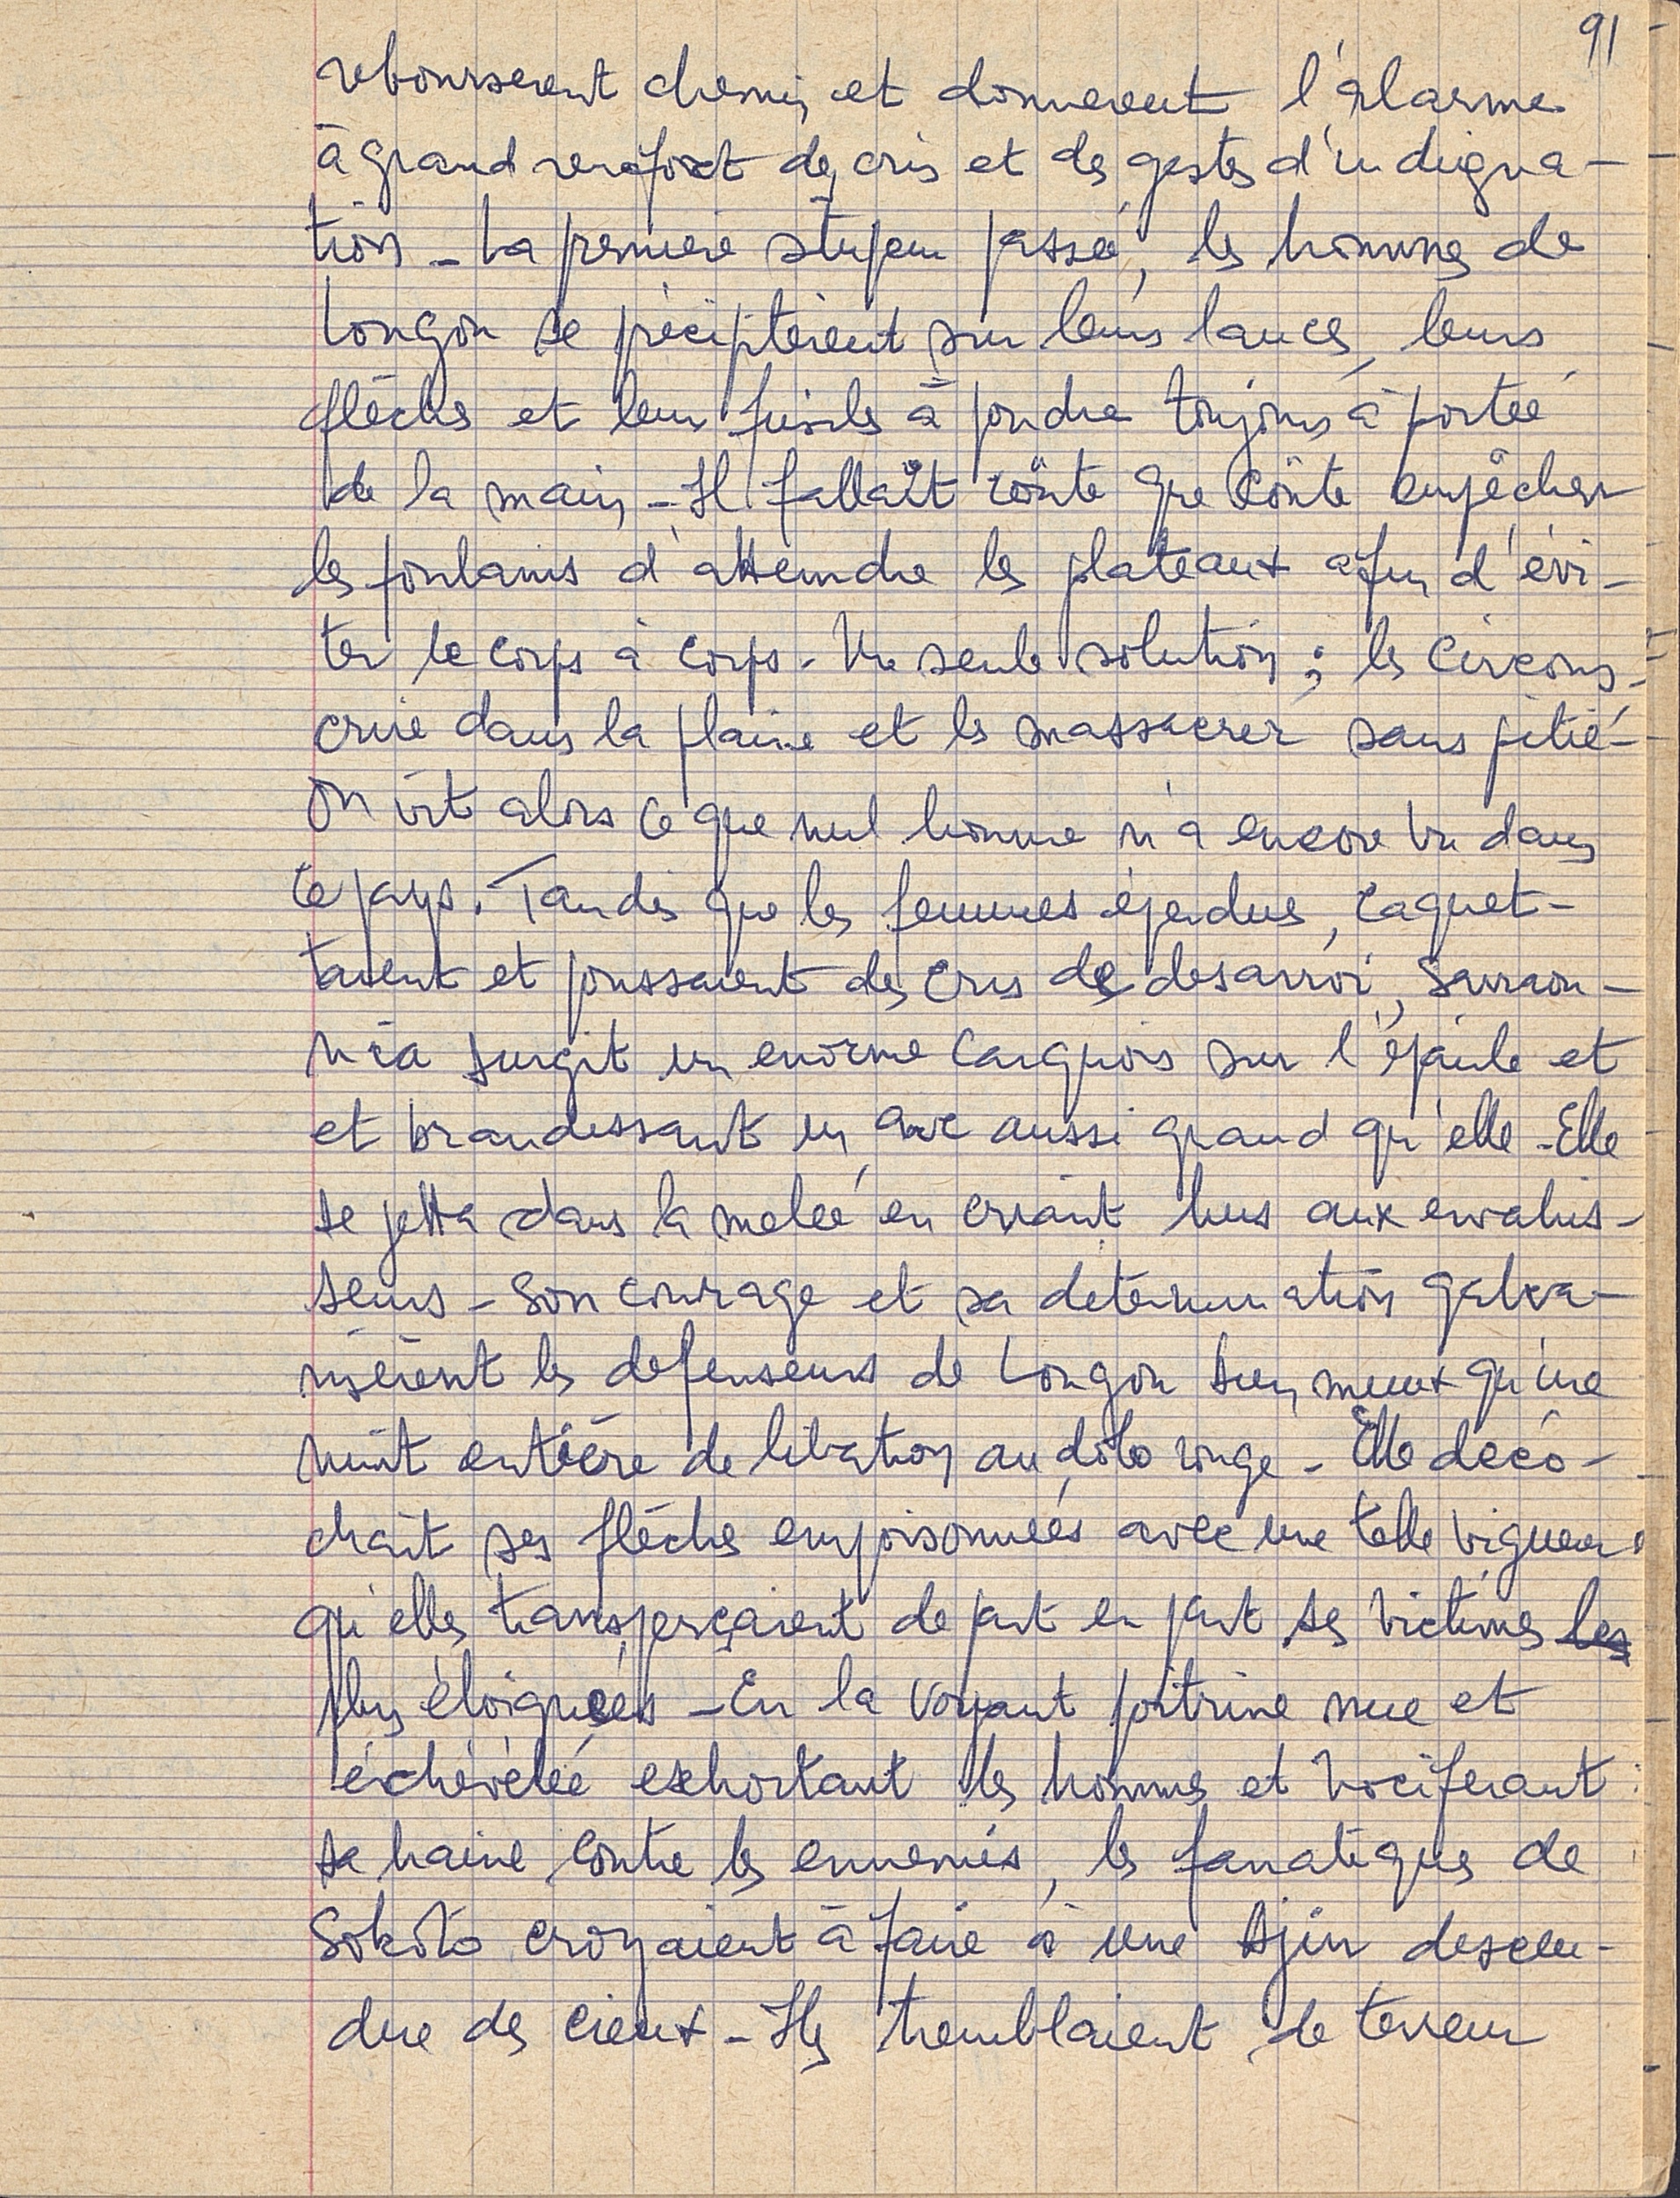 91
reboursèrent chemin et donnèrent l'alarme
à grand renfort de cris et de gestes d'indigna-
tion - La première stupeur passée, les hommes de
Lougou se précipitèrent sur leurs lances, leurs
flèches et leur fusils à poudre toujours à portée
de la main - Il fallait coûte que coûte empêcher
les foulanis d'atteindre les plateaux afin d'évi-
ter le corps à corps. Une seule solution ; les circons-
crire dans la plaine et les massacrer sans pitié -
On vit alors ce que nul homme n'a encore vu dans
ce pays. Tandis que les femmes éperdues, caquet-
taient et poussaient des cris de desarroi, Sarraou-
nia surgit un enorme carquois sur l'épaule et
et brandissant un arc aussi grand qu'elle - Elle
se jetta dans la melée en criant hus aux envahis-
seurs - Son courage et sa determination galva-
nisèrent les defenseurs de Lougou bien mieux qu'une
nuit entière de libation au dolo rouge - Elle deco-
chait ses flèches empoisonnées avec une telle vigueur
qu'elles transperçaient de part en part ses victimes les
plus éloignées - En la voyant poitrine nue et
échevelée exhortant les hommes et vociferant
sa haine contre les ennemis, les fanatiques de
Sokoto croyaient à faire à une djin descen-
due des cieux - Ils tremblaient de terreur